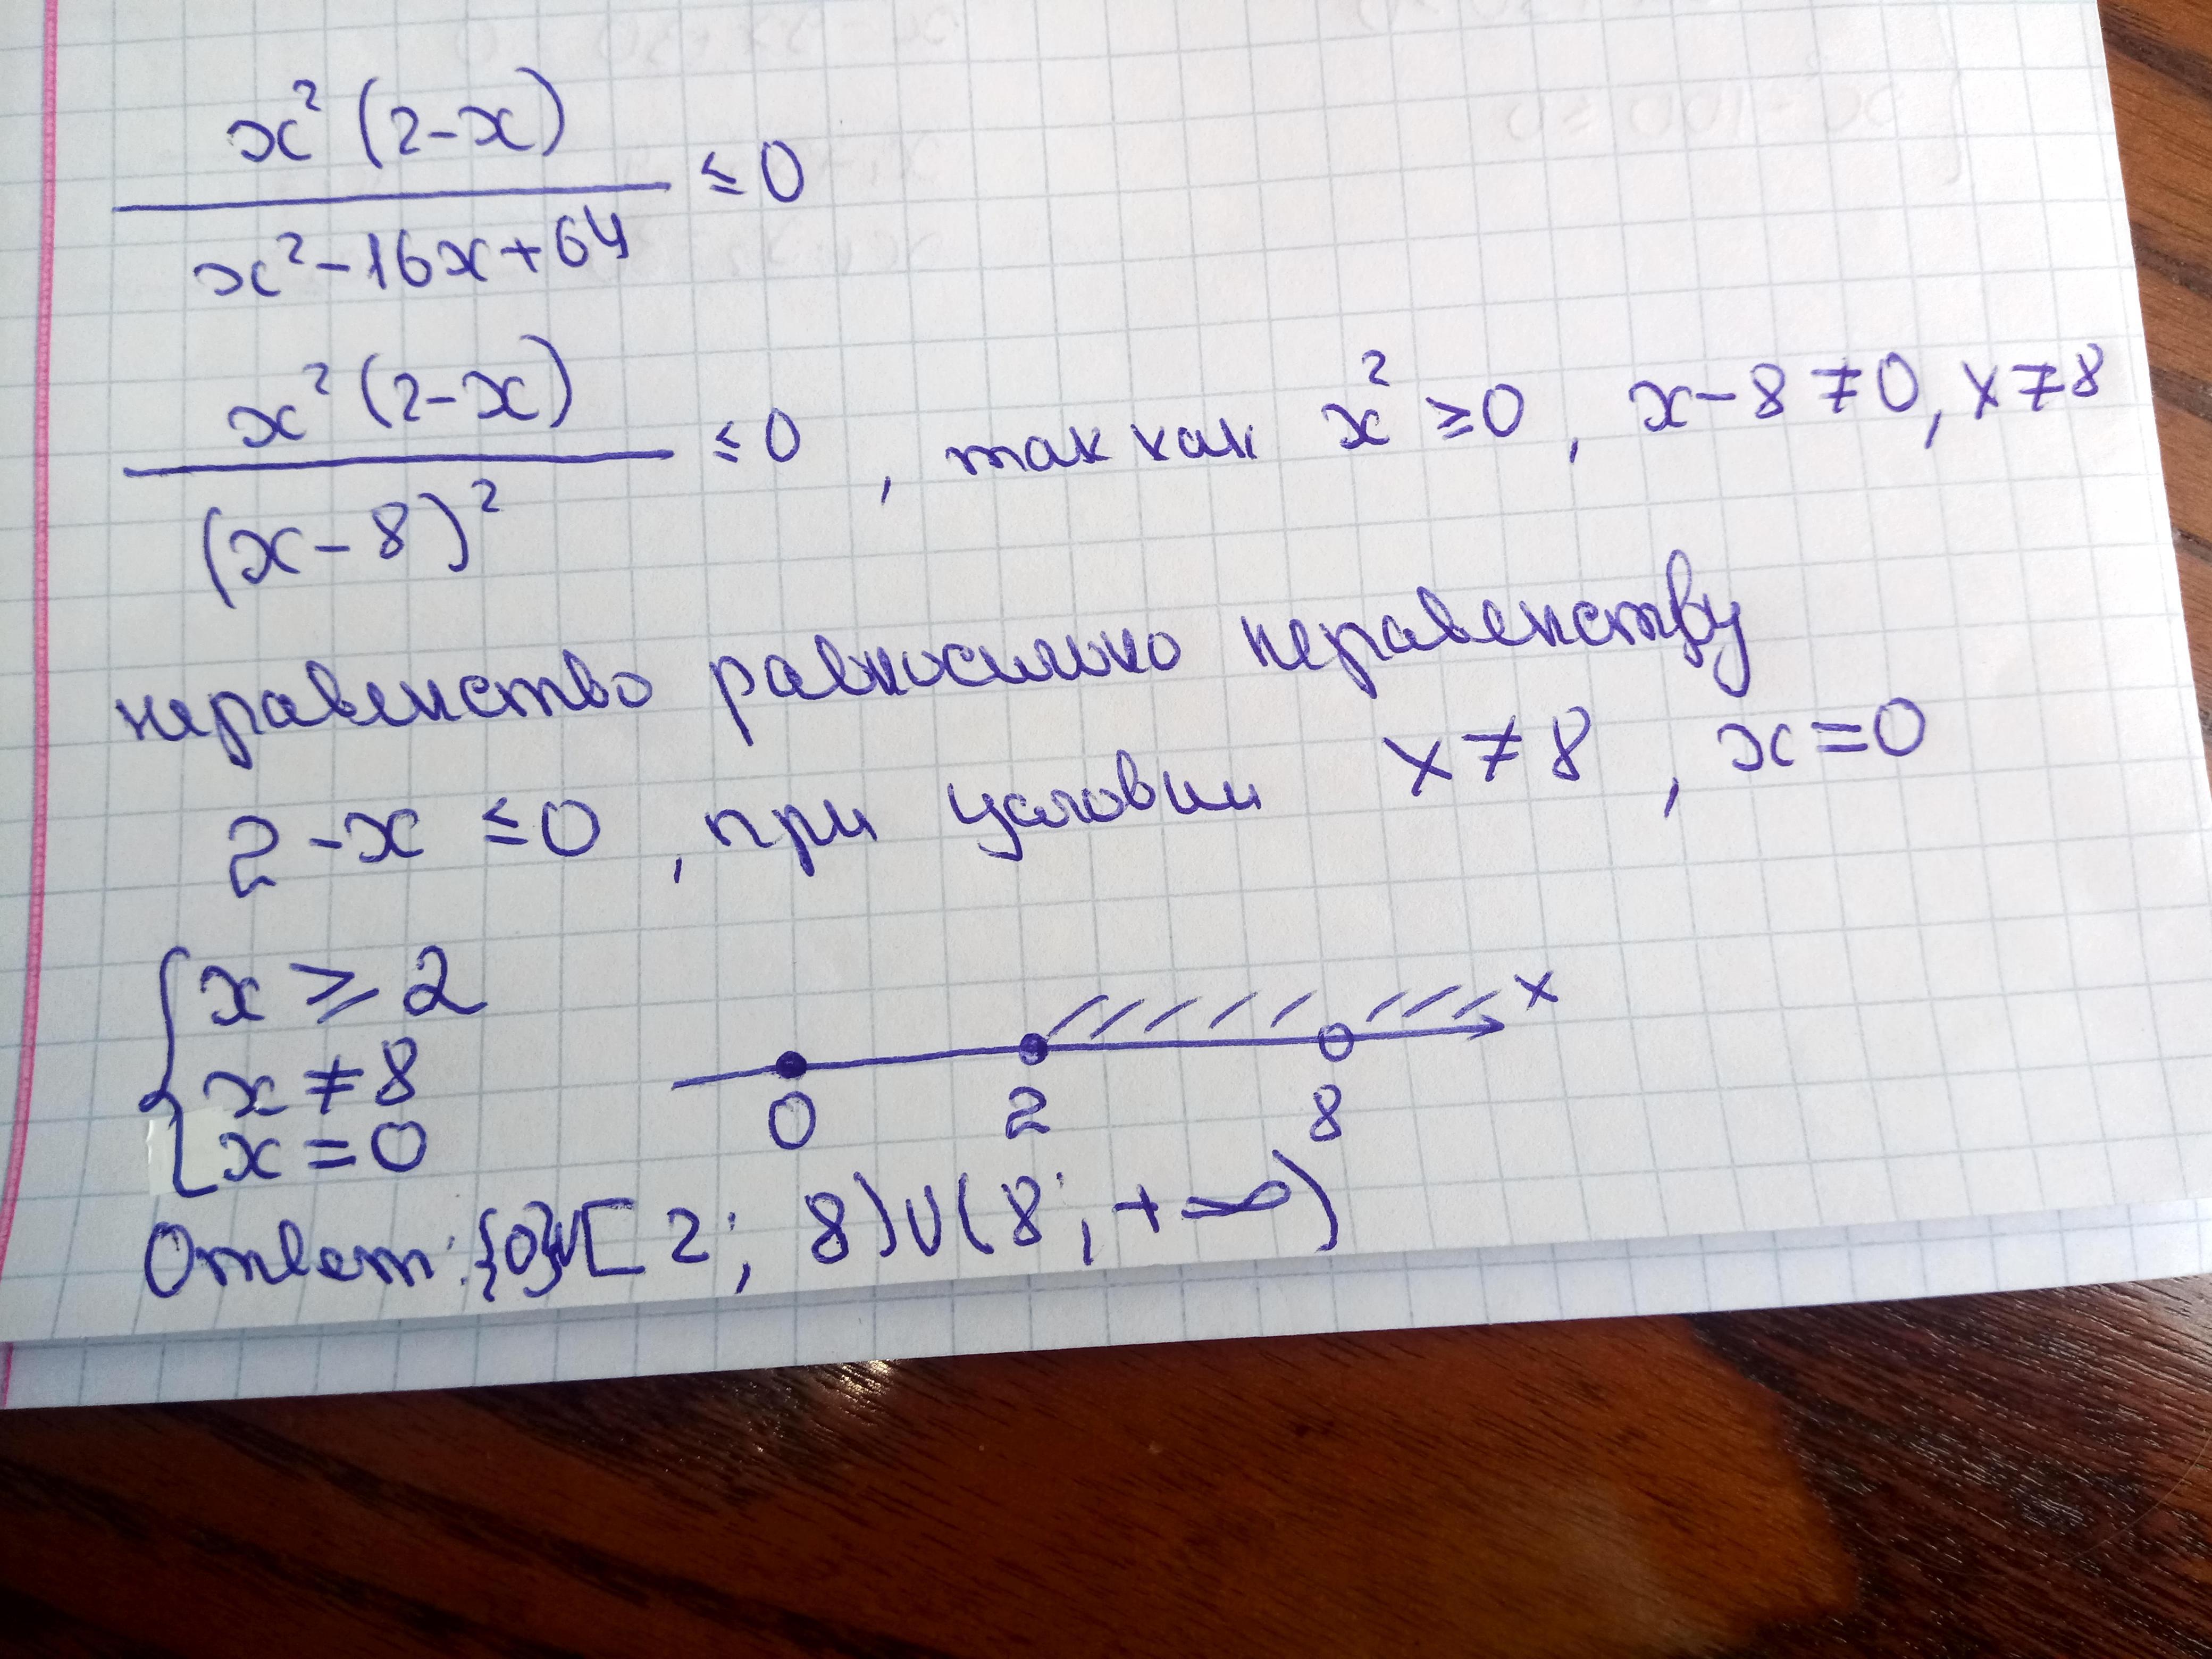 x²(2-x) / x²-16x+64 ≤0
x²(2-x) / (x-8)² ≤0, так как x² ≥0, x-8≠0, x≠8
неравенство равносильно неравенству
2-x ≤0, при условии x≠8, x=0
{x ≥ 2
x ≠ 8
x = 0
0 2 8 x
Ответ: {0}∪[2; 8)∪(8; +∞)